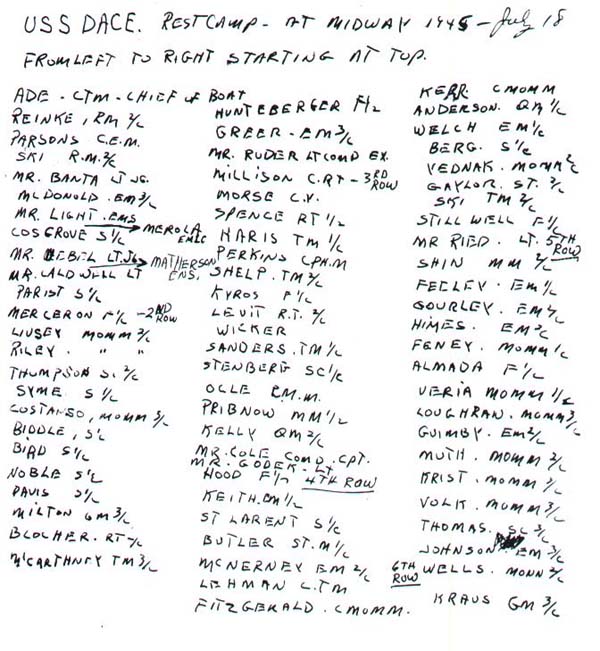 USS DACE. RESTCAMP - AT MIDWAY 1945 - July 18
FROM LEFT TO RIGHT STARTING AT TOP.
ADE - CTM - CHIEF of BOAT
REINKE, RM 2/C
PARSONS C.E.M.
SKI R.M. 2/C
MR. BANTA LT JG.
McDONALD. EM 3/C
MR. LIGHT. ENS → MEROLA EM2C
COSGROVE S 1/C
MR. LT. JG → MATHERSON ENS.
MR. CALDWELL LT
PARIST S 1/C
MERCERON F 1/C - 2ND ROW
LIVSEY MOMM 3/C
RILEY . " "
THOMPSON S. 2/C
SYME S 1/C
COSTANSO, MOMM 3/C
BIDDLE, S 1/C
BIRD S 1/C
NOBLE S 1/C
DAVIS S 1/C
MILTON GM 3/C
BLOCHER. RT
McCARTHNEY TM 3/C
HUNTEBERGER F 1/2
GREER - EM 3/C
MR. RUDER LT COMD EX.
MILLISON C.RT - 3RD ROW
MORSE C.Y.
SPENCE RT 1/2
HARIS TM 1/C
PERKINS CPH.M
SHELP. TM 3/C
KYROS F 1/C
LEVIT R.T. 2/C
WICKER
SANDERS. TM 1/C
STENBERG SC 1/C
OLLE R.M.
PRIBNOW MM 1/2
KELLY QM 2/C
MR. COLE COMD. CPT.
MR. GODEK - LT
HOOD F 1/2 4TH ROW
KEITH. EM 1/2
ST LARENT S 1/C
BUTLER ST. M 1/C
MCNERNEY EM 2/C
LEHMAN C.TM
FITZGERALD. CMOMM.
KERR CMOMM
ANDERSON. QM 1/C
WELCH EM 1/C
BERG. S 1/C
VEDNAK. MOMM 2/C
GAYLOR. ST. 2/C
SKI TM 2/C
STILLWELL F 1/C
MR RIED. LT. 5TH ROW
SHIN MM 2/C
FEELEY. EM 1/C
GOURLEY. EM 3/C
HIMES. EM 3/C
FENEY. MOMM 1/C
ALMADA F 1/C
VERIA MOMM 1/2
LOUGHRAN. MOMM 3/C
GUIMBY. EM 2/C
MUTH. MOMM 2/C
KRIST. MOMM 3/C
VOLK. MOMM 3/C
THOMAS. SC 3/C
JOHNSON EM 3/C
6TH ROW WELLS. MOMM 2/C
KRAUS GM 3/C